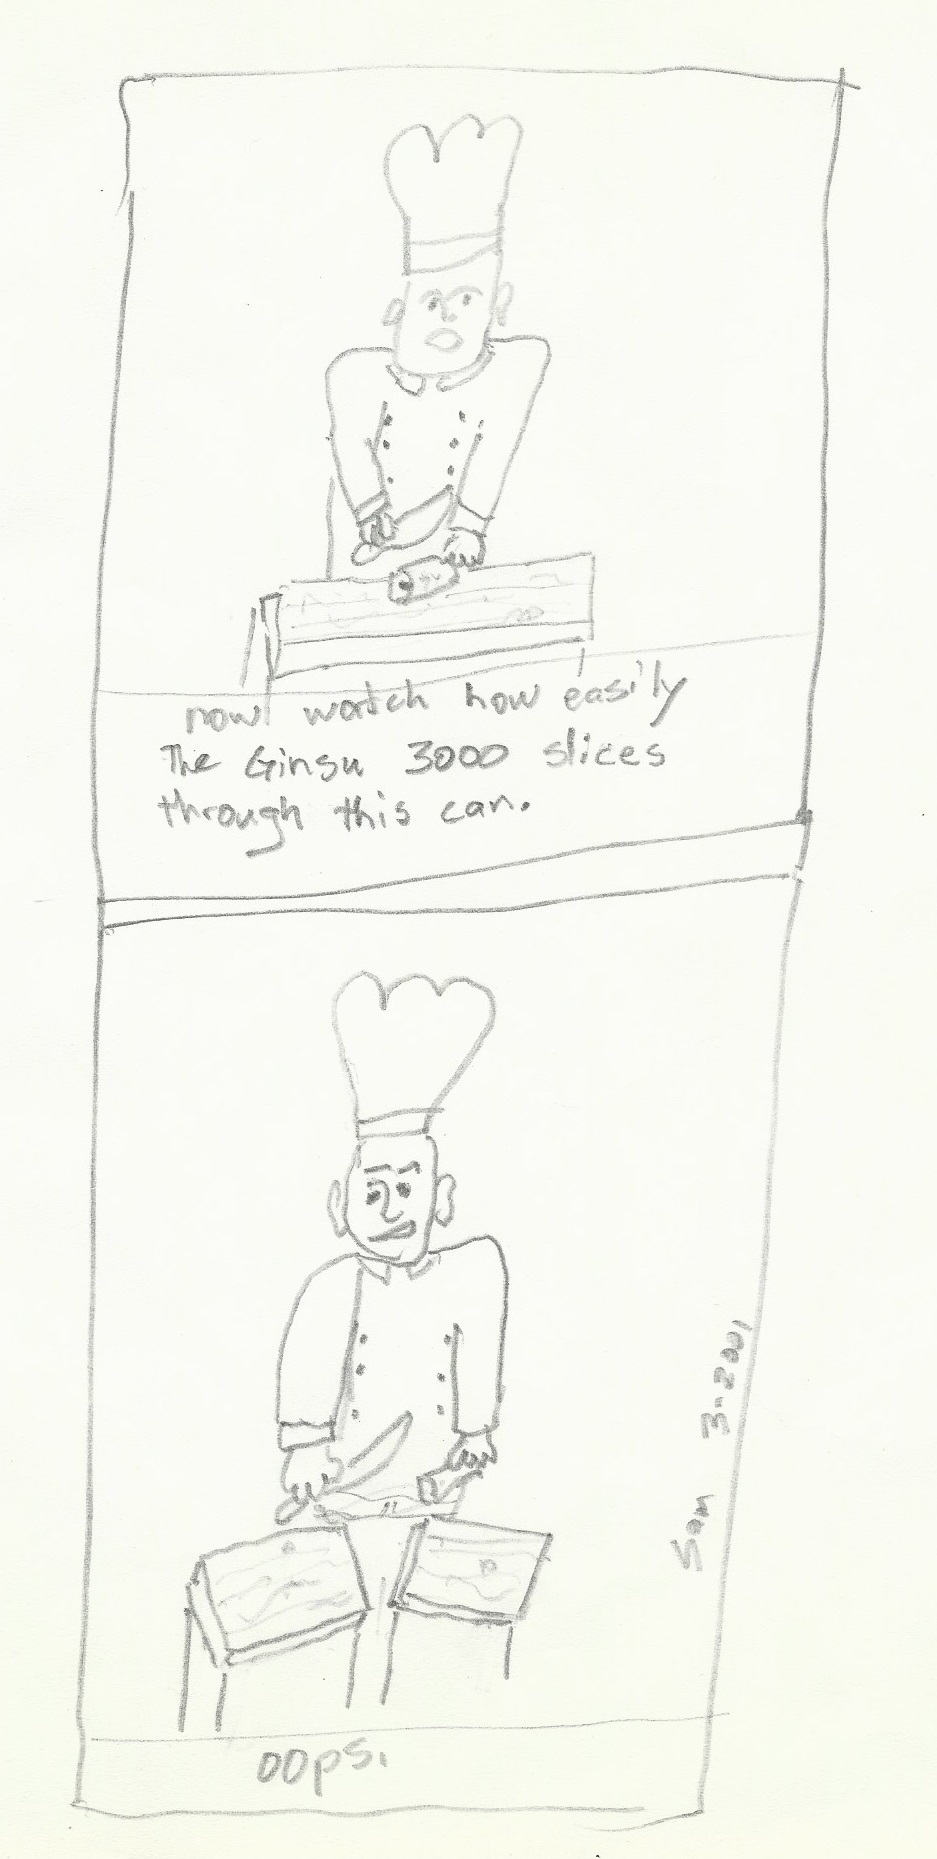 now watch how easily
The Ginsu 3000 slices
through this can.
Sam 3-2001
oops.